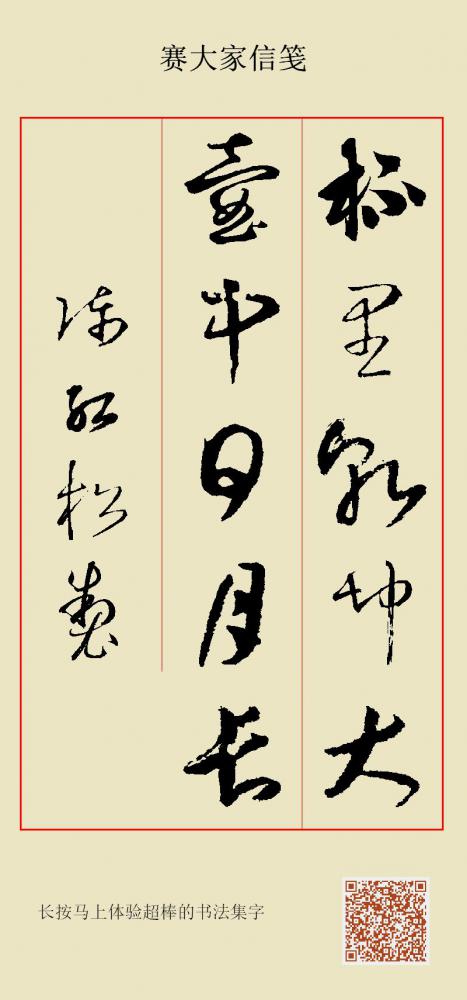 赛大家信笺
杯里乾坤大
壺中日月长
陈红松製
长按马上体验超棒的书法集字